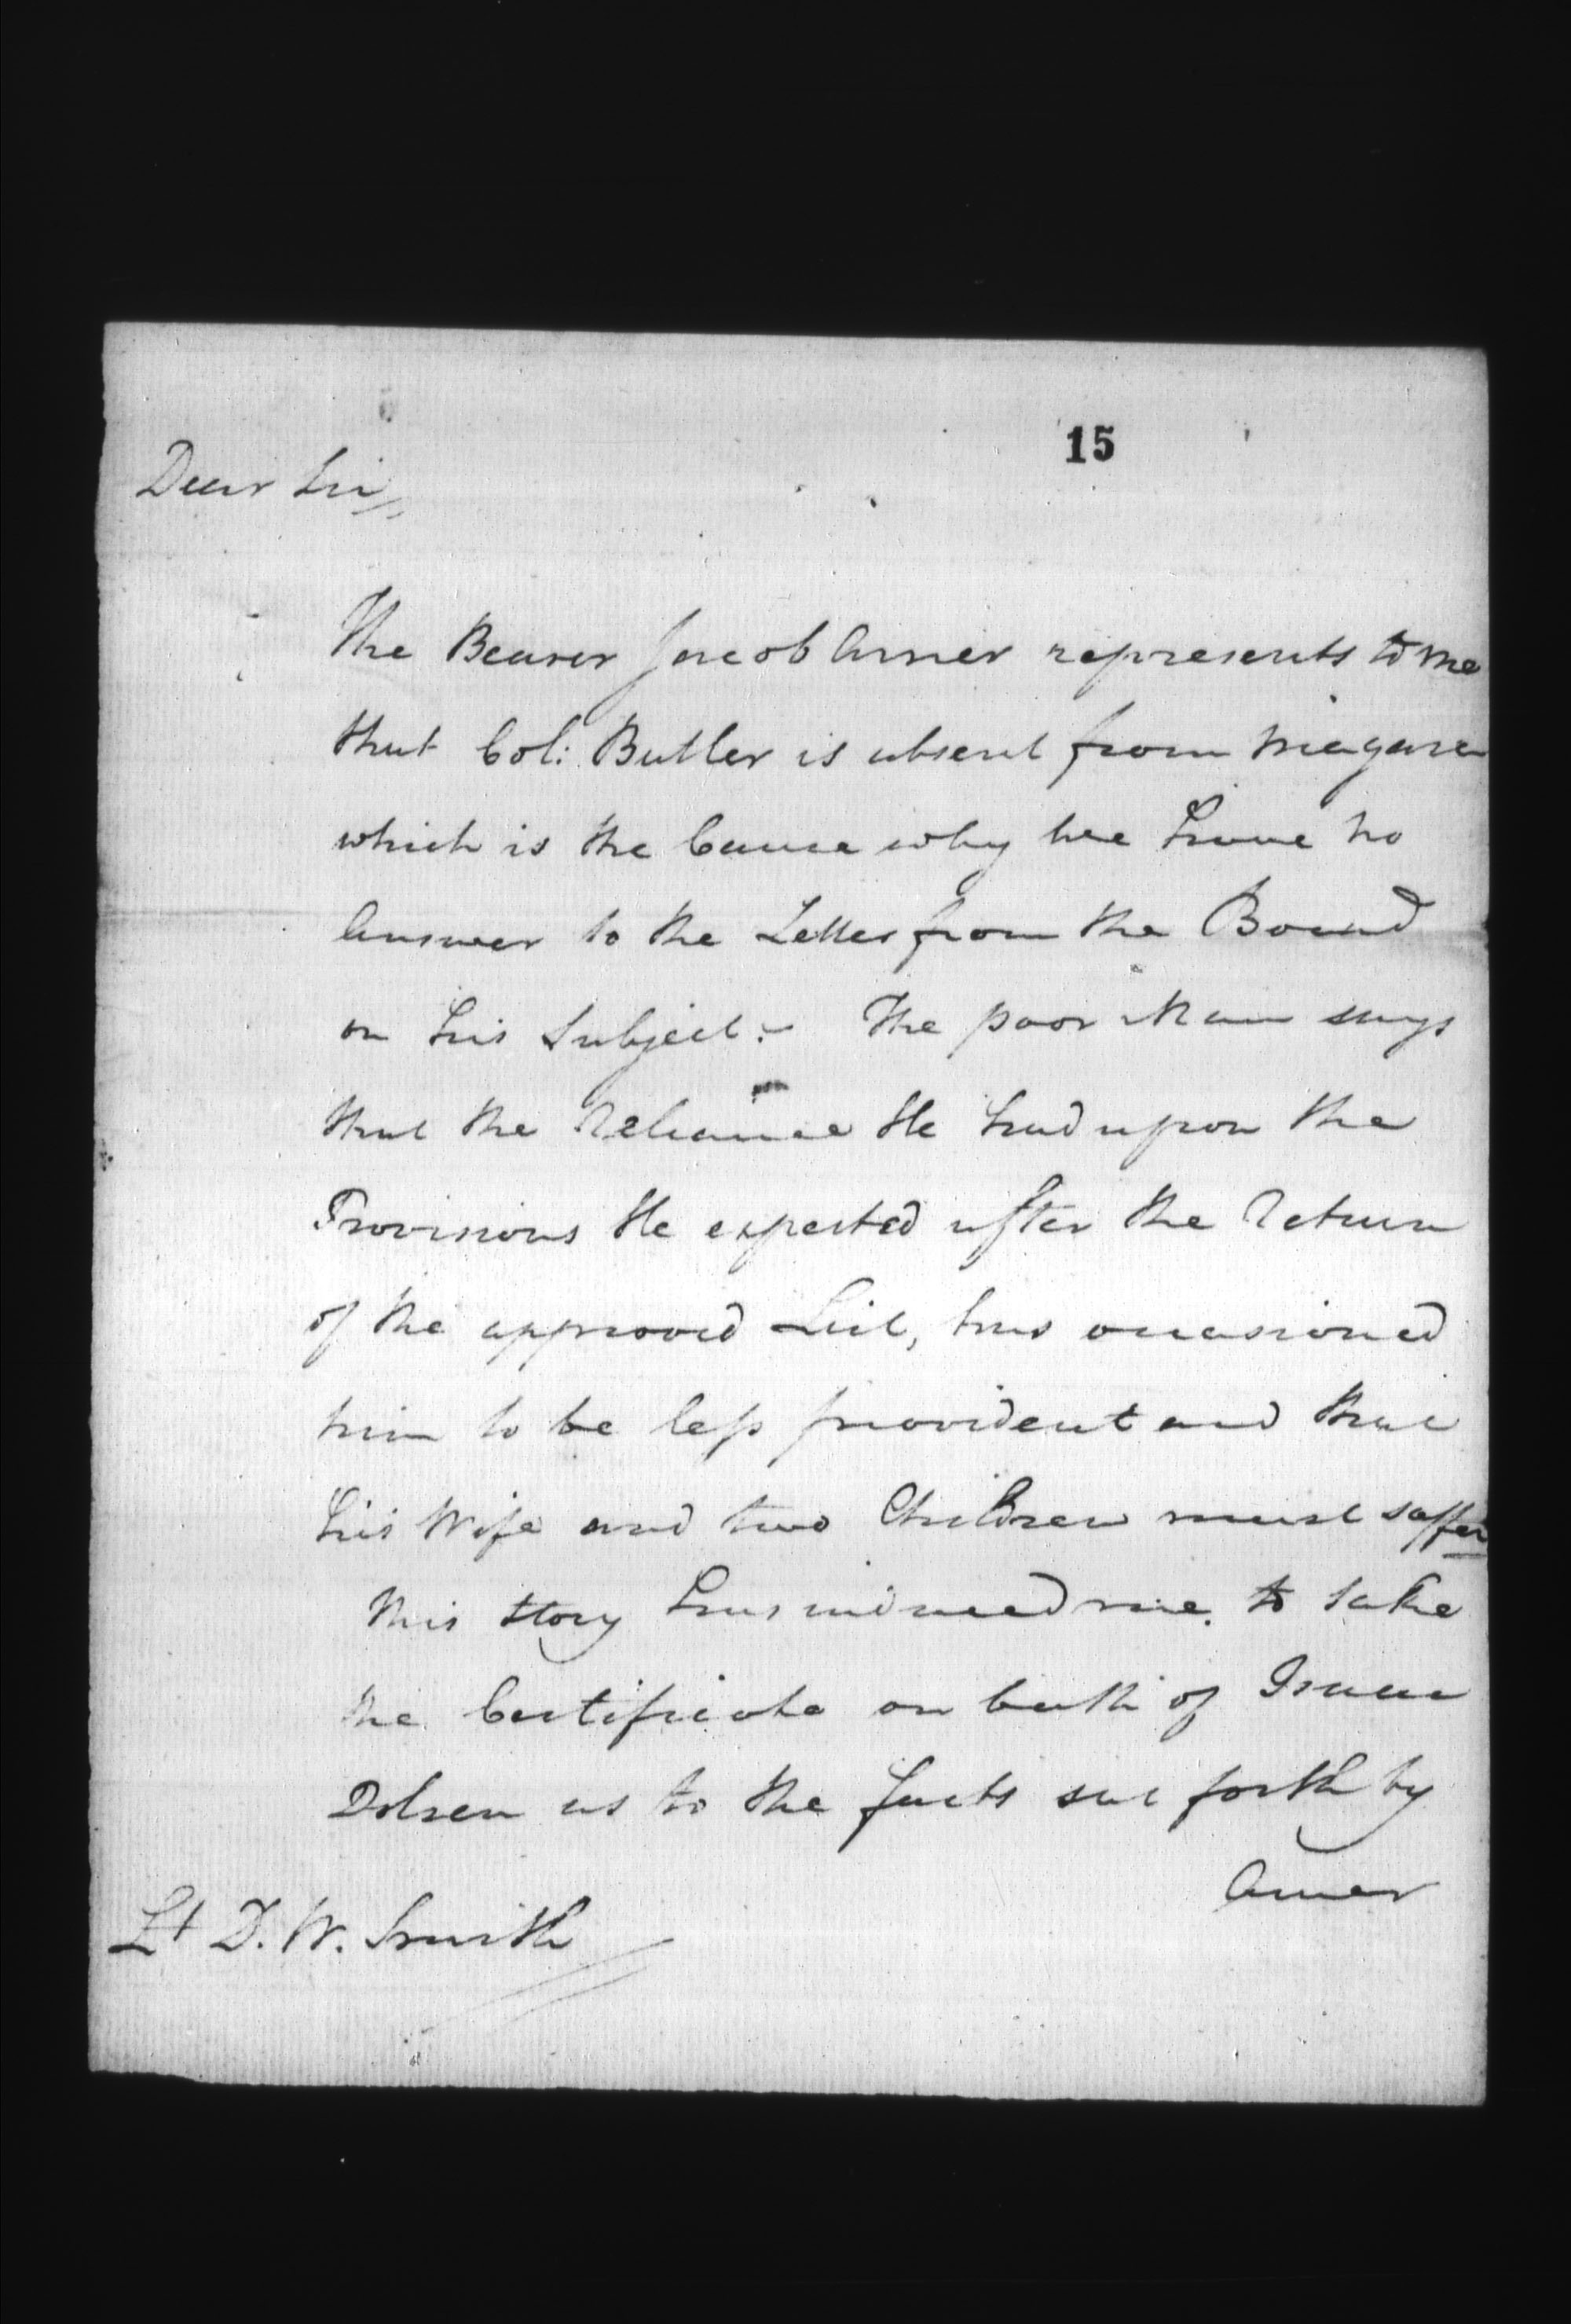 15
Dear Sir,
The Bearer Jacob Arner represents to me
that Col: Butler is absent from Niagara
which is the Cause why we have no
Answer to the Letter from the Board
on his Subject:- The poor Man says
that the Reliance He had upon the
Provisions He expected after the Return
of the approved List, has occasioned
him to be less provident and that
his Wife and two Children must suffer
This story has induced me to take
the Certificate on Oath of Isaac
Dolsen as to the facts set forth by
Arner
Lt D. W. Smith